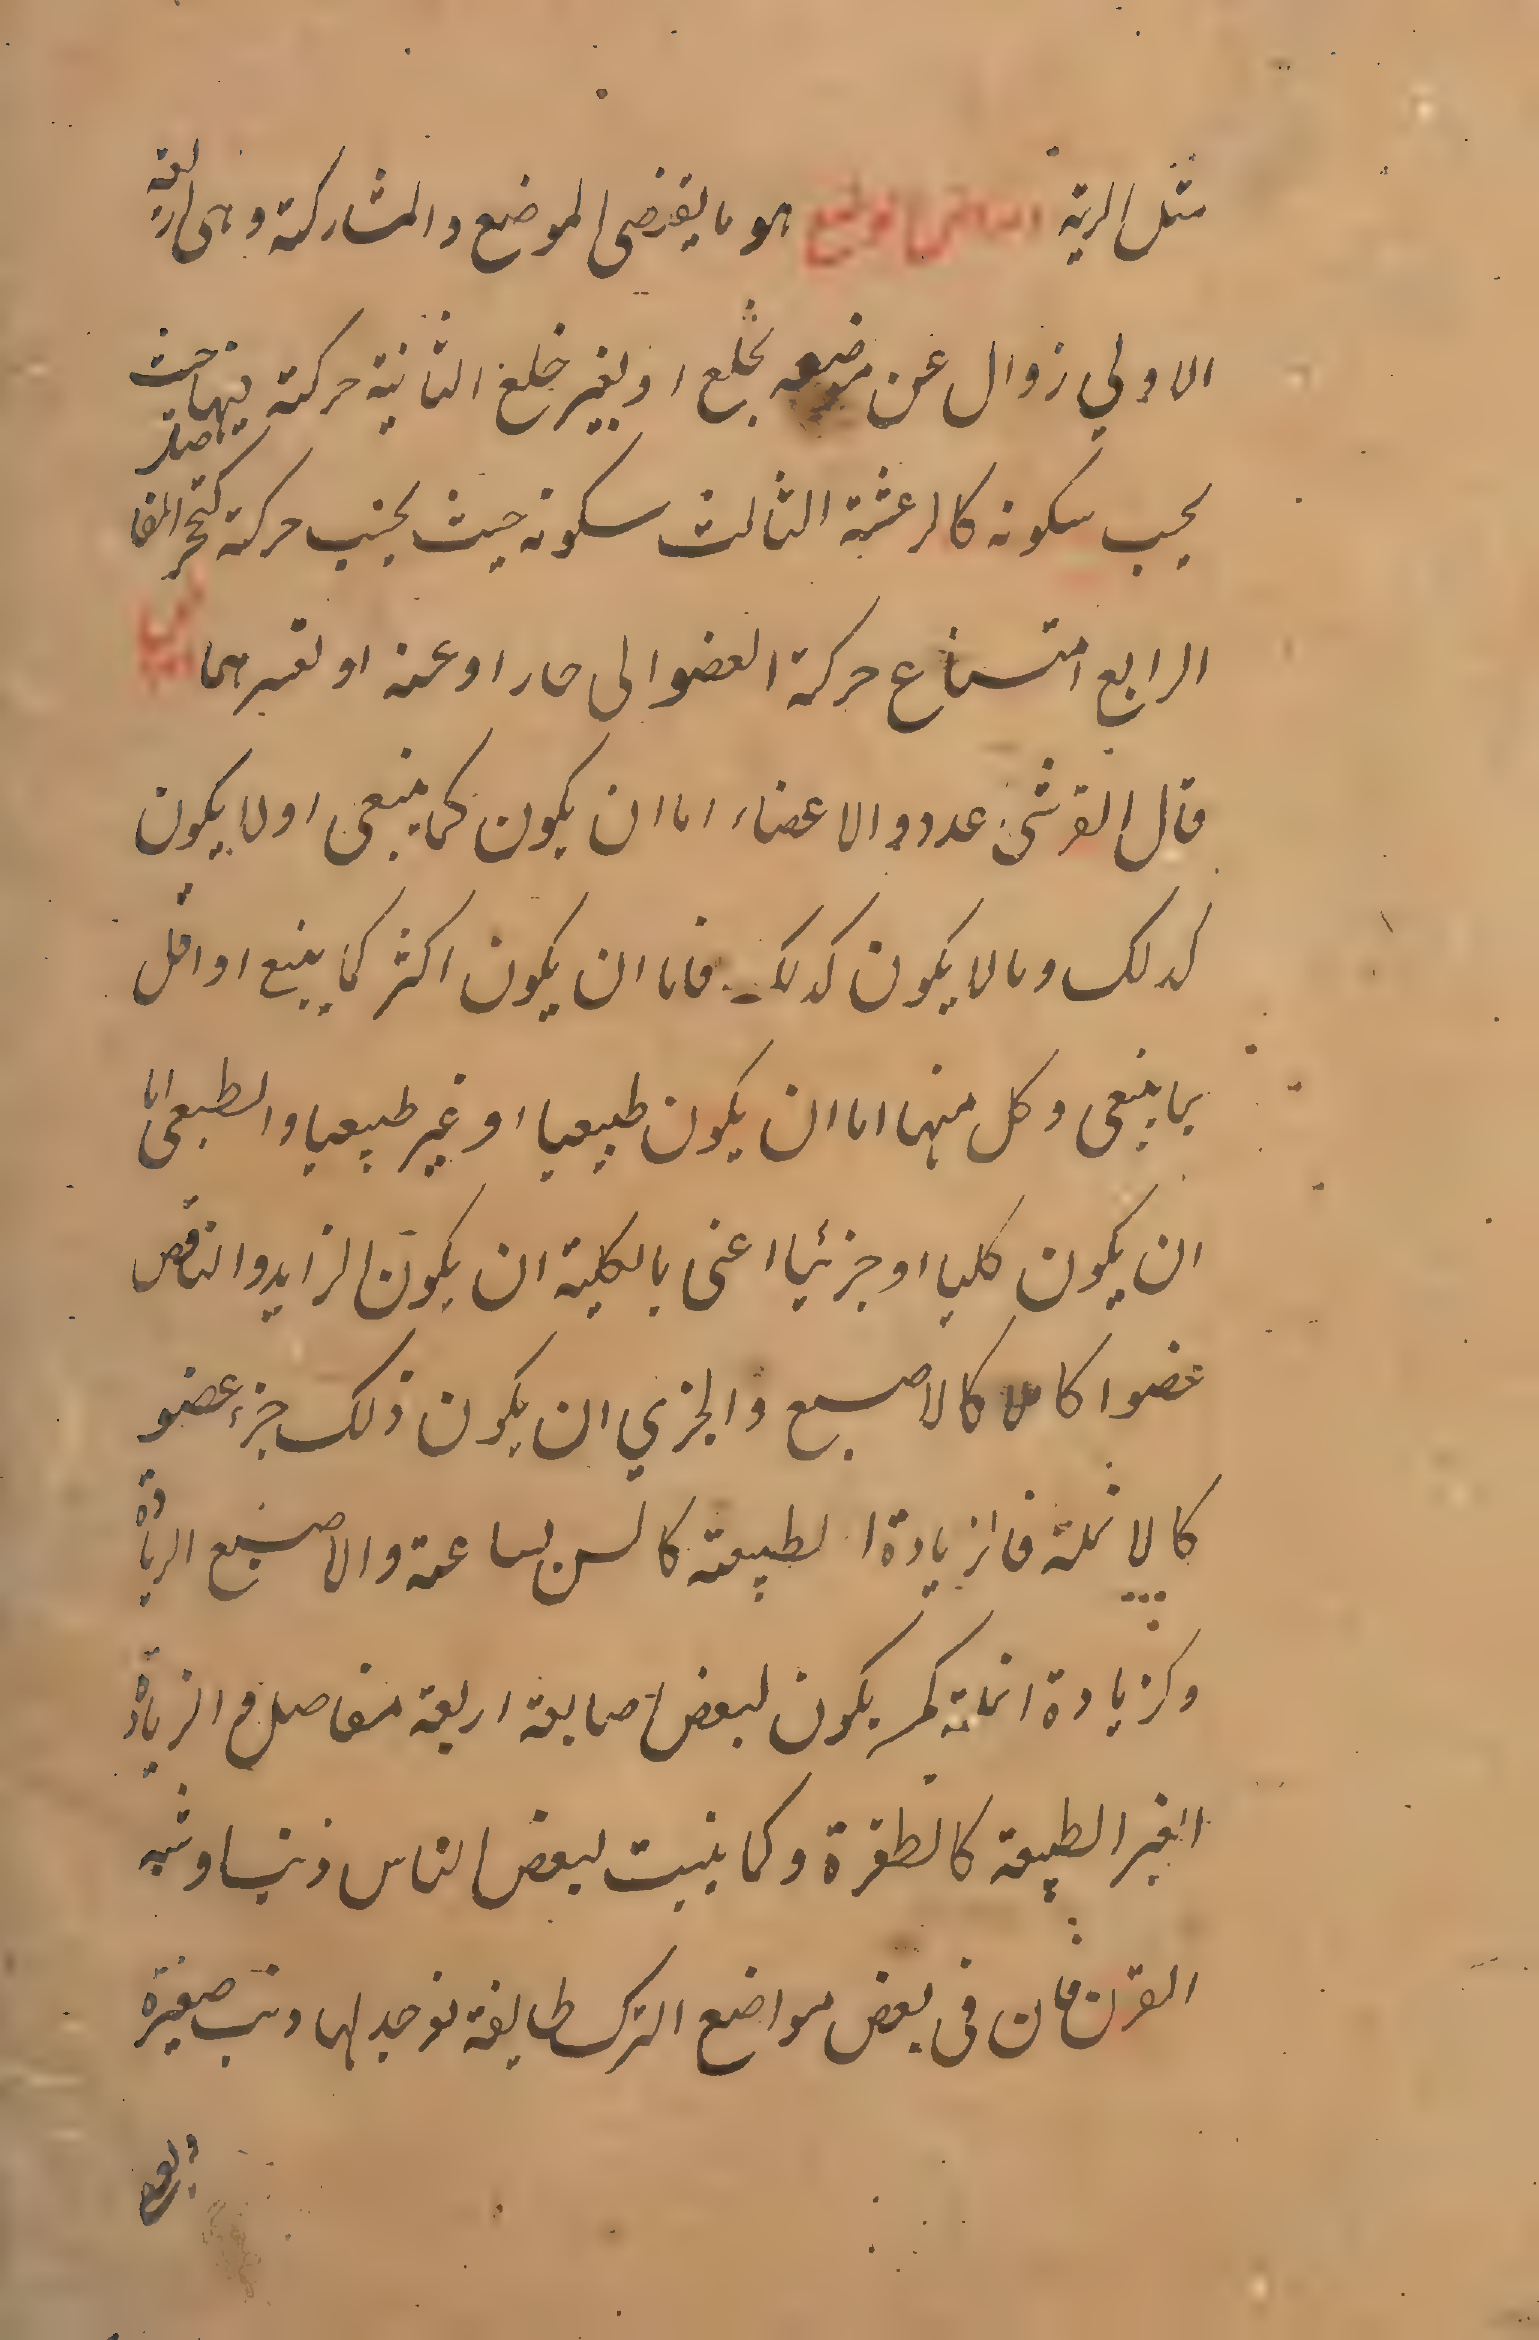 مثل الرية امراض الوضع هو ما يقتضى الموضع والمشاركة وهى اربعة
الاولي زوال عن موضعه بخلع او بغير خلع الثانية حركة فيها حيث
يجب سكونه كالرعشة الثالث سكونه حيث يجب حركة كتحجر المفاصل
الرابع امتناع حركة العضو الى جار او عنه او لغيرهما
قال القرشى عدد والاعضاء اما ان يكون كما ينبغى او لا يكون
كدلك وما لا يكون كدلك فاما ان يكون اكثر كما ينبغ او اقل
بما ينبغى وكل منها اما ان يكون طبيعيا او غير طبيعيا والطبعى اما
ان يكون كليا او جزئيا اعنى بالكلية ان يكون الزايد والناقص
عضوا كاملا كالاصبع والجزي ان يكون ذلك جزء عضو
كالانملة فالزيادة الطبيعة كالسن لساعة والاصبع الزيادة
وكزيادة انملة كمر يكون لبعض اصابعة اربعة مفاصل والزيادة
الغير الطبيعة كالظفرة وكما ينبت لبعض الناس ذنبا وشبه
القرن فان فى بعض مواضع الترك طايفة توجد لها ذنب صغيرة